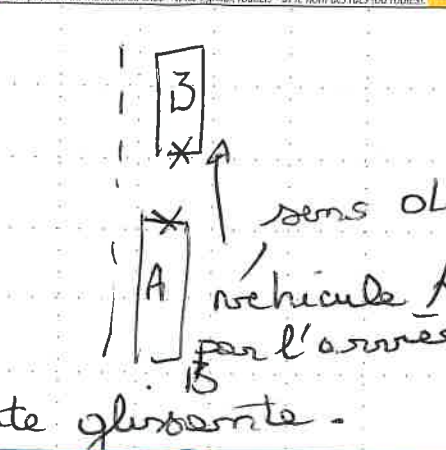 B
sens
A
véhicule A
par l'arriè
B
te glissante.